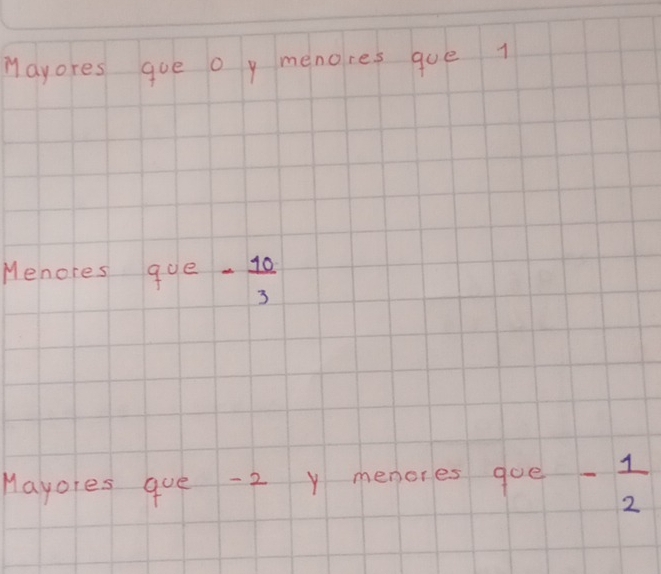 Mayores que 0 y menores que 1
Menores que - 10/3
Mayores que -2 y menores que - 1/2